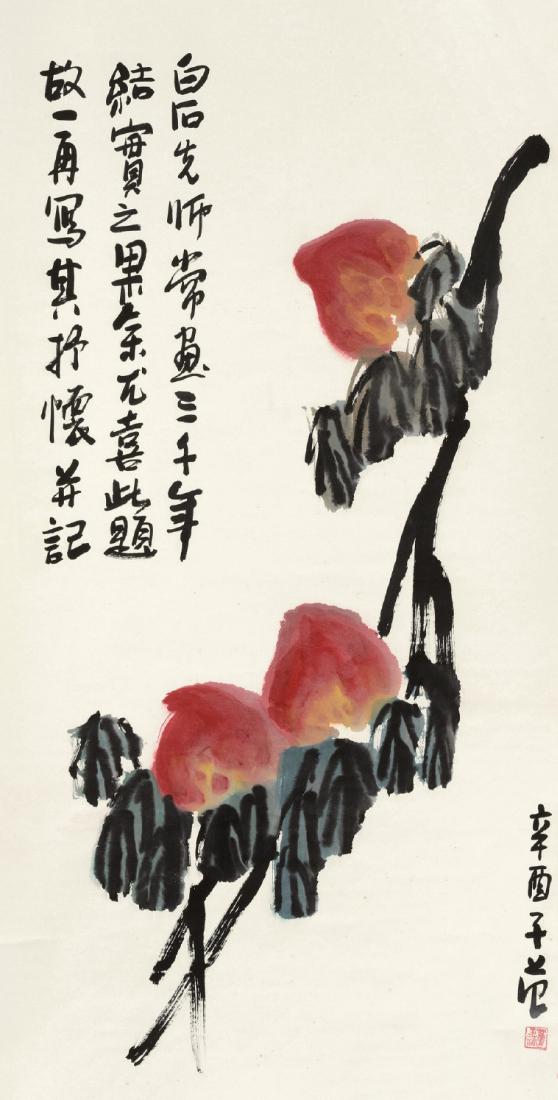 白石先师常画三千年
结實之果余尤喜此题
故一再寫其抒懷并記
辛酉子范